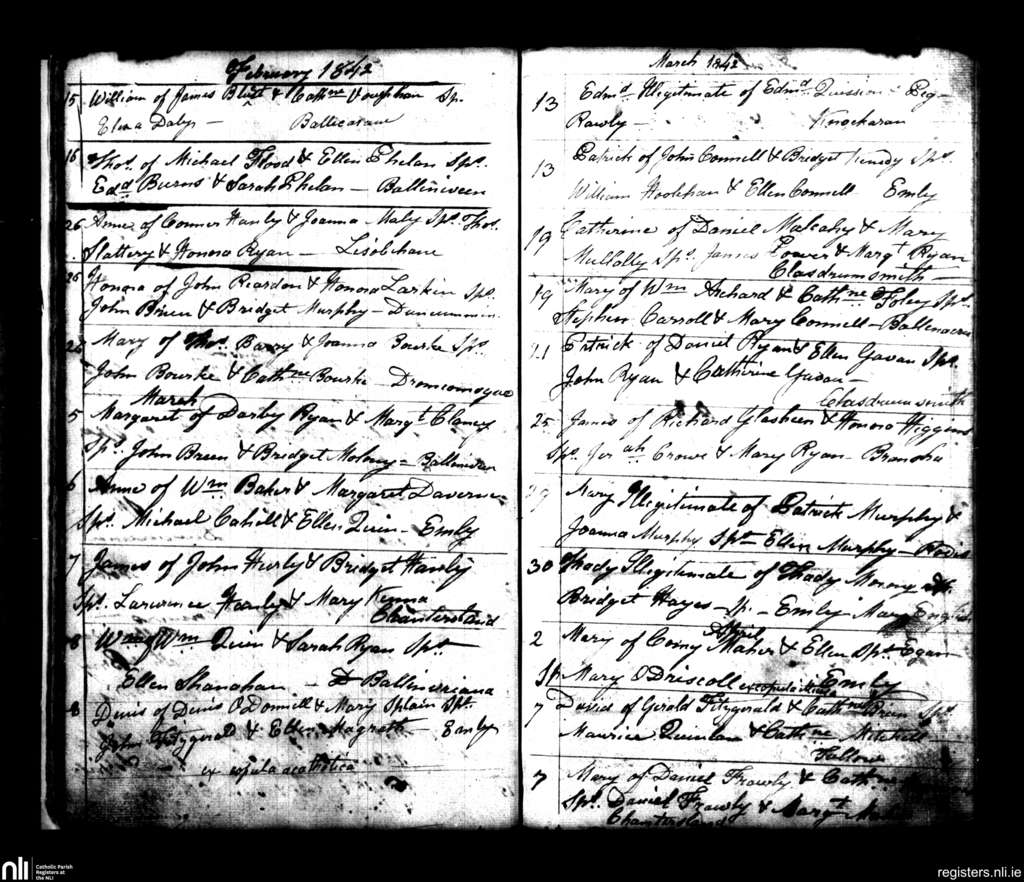 February 1842
15 William of James & Cathne Vaughan Sp.
Eliza Daly - Ballicarane
16 Thos. of Michael Flood & Ellen Phelan Sps.
Edd Burns & Sarah Phelan - Ballinveen
26 Anne of Conner Hanly & Joanna Maly Sps. Thos.
Slattery & Honora Ryan - Lisobehane
26 Honora of John Reardon & Honora Larkin Sps.
John Brien & Bridget Murphy - Duncummin
28 Mary of Thos. Barry & Joanna Bourke Sps.
John Bourke & Cathne Bourke - Dromcomogue
March
5 Margaret of Darby Ryan & Margt Clancy
Sps. John Breen & Bridget Molony - Ballinvan
6 Anne of Wm Baker & Margaret Daverne
Sps. Michael Cahill & Ellen Quin - Emly
7 James of John Hurly & Bridget Hanly
Sps. Laurence Hanly & Mary Kenna
Chantersland
8 Wm of Wm Quin & Sarah Ryan Spt
Ellen Shanahan - Balliniriana
8 Denis of Denis O'Donnell & Mary Splain Sps.
John Fitzgerald & Ellen Magrath - Emly
ex copula acatholica
March 1842
13 Edmd. Illegitimate of Edmd. - Peg
Rawly - Knockaran
13 Patrick of John Connell & Bridget Kennedy Sps.
William Hoolihan & Ellen Connell Emly
19 Catherine of Daniel Mulcahy & Mary
Mullally Sps. James Power & Margt Ryan
Glasdrumsmith -
19 Mary of Wm Archard & Cathne Foley Sps.
Stephen Carroll & Mary Connell - Ballinacree
21 Patrick of Daniel Ryan & Ellen Gavan Sps.
John Ryan & Catherine Gavan -
Glasdrumsmith
25 James of Richard Glasheen & Honora Higgins
Sps. Jeriah Crowe & Mary Ryan - Bransha
29 Mary Illegitimate of Patrick Murphy &
Joanna Murphy Spt Ellen Murphy -
30 Thady Illegitimate of Thady Morony &
Bridget Hayes - Sp. - Emly Mary English
April
2 Mary of Comy Maher & Ellen Spt Egan
Sp. Mary O'Driscoll Emly
ex copula
7 David of Gerald Fitzgerald & Cathne Sps
Maurice Quinlan & Cathne Mitchell
Fallow
7 Mary of Daniel Frawly & Cathne
Sps. Daniel Frawly & Margt
Chantersland
nli Catholic Parish
Registers at
the NLI
registers.nli.ie